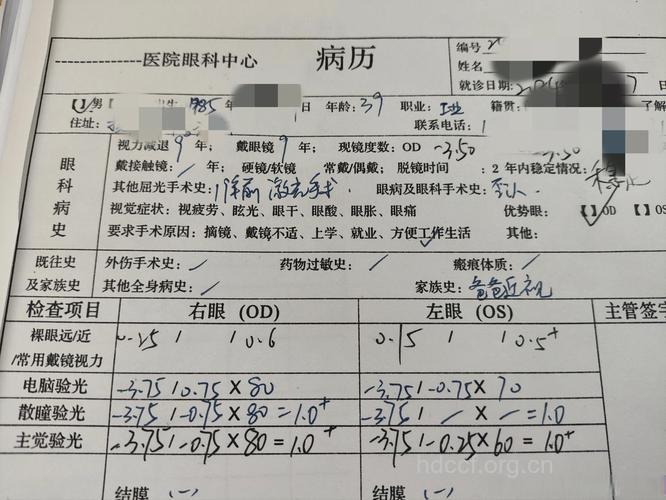 医院眼科中心 病历
编号
姓名
就诊日期:
男 出生 1985 年 日 年龄:39 职业: 工业 籍贯:
住址: 联系电话:
视力减退 9 年: 戴眼镜 9 年: 现镜度数: OD -3.50 -3.50
戴接触镜: / 年: 硬镜/软镜 常戴/偶戴: 脱镜时间 : 2 年内稳定情况: 稳定
其他屈光手术史: 激光手术 眼病及眼科手术史:
视觉症状: 视疲劳、眩光、眼干、眼酸、眼胀、眼痛 优势眼: 【 】OD 【 】OS
要求手术原因: 摘镜、戴镜不适、上学、就业、方便工作生活 其他:
眼科病史
既往史 外伤手术史: / 药物过敏史: / 瘢痕体质: /
及家族史 其他全身病史: / 家族史: 爸爸近视
检查项目 右眼 (OD) 左眼 (OS) 主管签字
裸眼远/近 0.25 / / 0.6 0.15 / / 0.5+
/常用戴镜视力
电脑验光 -3.75 / 0.75 × 80 -3.75 / -0.75 × 70
散瞳验光 -3.75 / -0.75 × 80 = 1.0+ -3.75 / / × / = 1.0
主觉验光 -3.75 / -0.75 × 80 = 1.0+ -3.75 / -0.25 × 60 = 1.0+
结膜 (-) 结膜 (-)
hdccf.org.cn